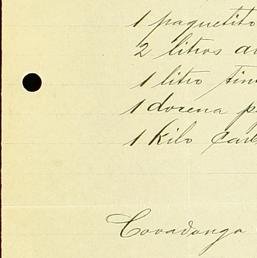 1 paquetito
2 litros
1 litro
1 docena
1 Kilo
Covadonga